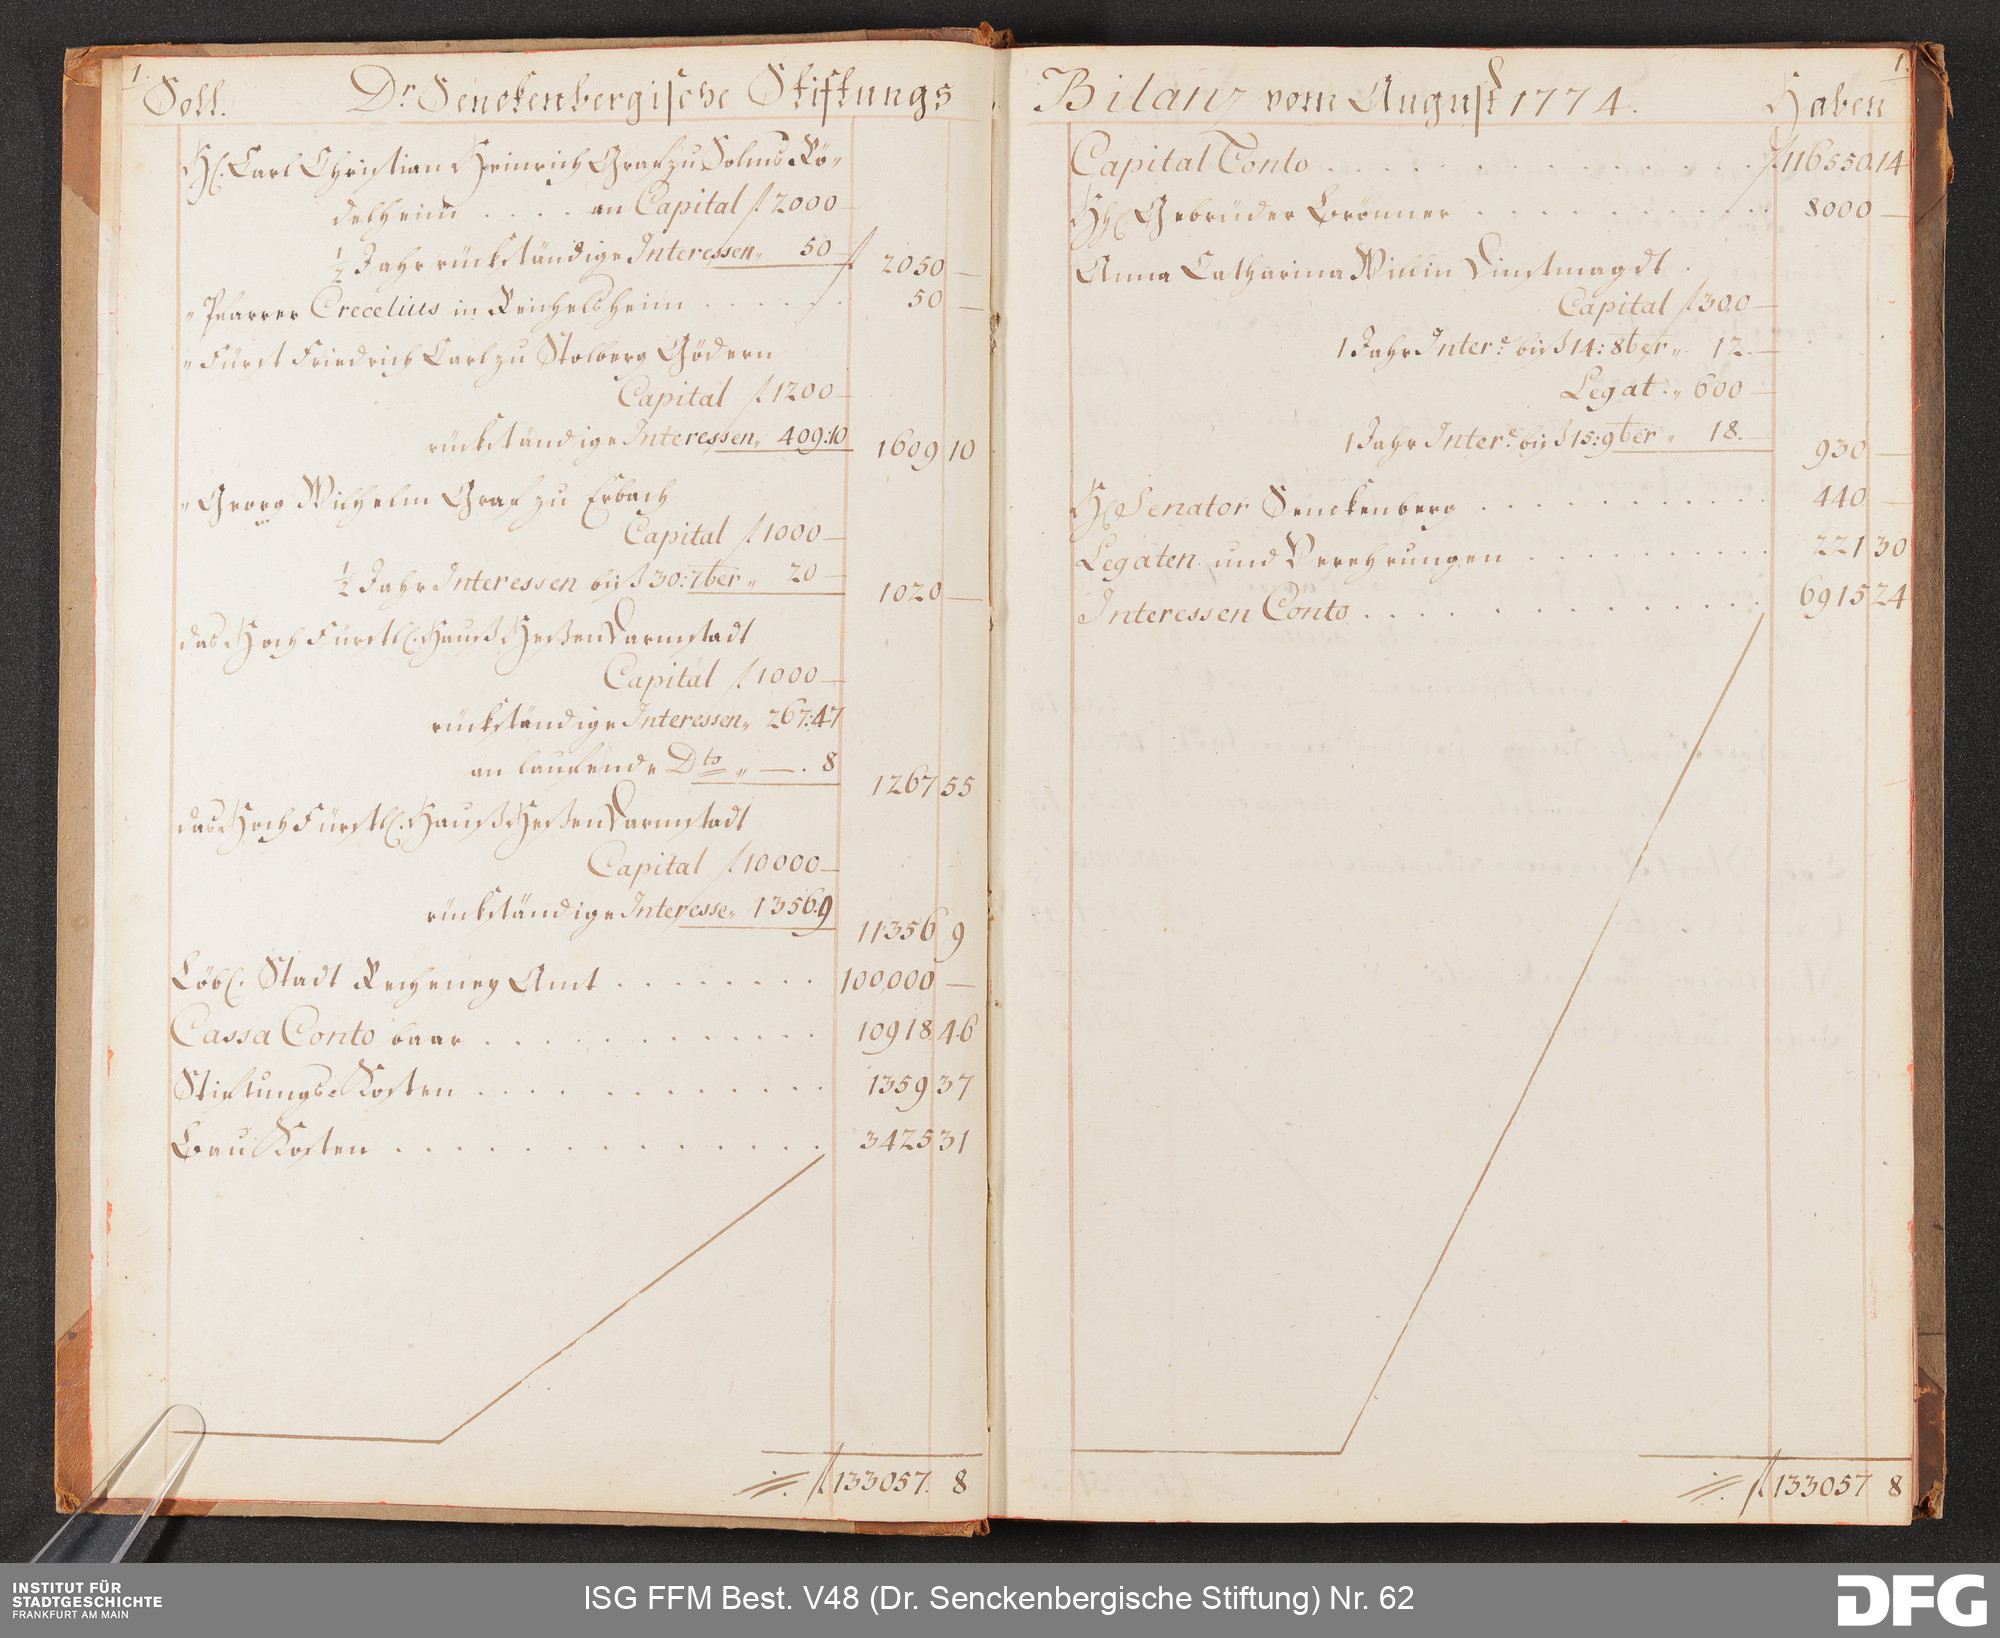 1.
Soll. Dr Senckenbergische Stiftungs
H. Carl Christian Heinrich Graf zu Solms Rö„
delheim . . . . an Capital f 2000 —
½ Jahr rückständige Interessen „ 50 — f 2050 —
„ Pfarrer Crecelius in Reichelsheim . . . . . . 50 —
„ Fürst Friedrich Carl zu Stolberg Gödern
Capital f 1200 —
rückständige Interessen „ 409:10 1609 10
„ Georg Wilhelm Graf zu Erbach
Capital f 1000 —
½ Jahr Interessen bis 30: 7ber „ 20 — 1020 —
das Hoch Fürstl. Hauß Heßen Darmstadt
Capital f 1000 —
rückständige Interessen „ 267:47
an laufende Dto „ —. 8 1267 55
das Hoch Fürstl. Hauß Heßen Darmstadt
Capital f 10000 —
rückständige Interesse „ 1356.9 11356 9
Löbl. Stadt Recheney Amt . . . . . . . . 100,000 —
Cassa Conto baar . . . . . . . . . . . . 10918 46
Stiftungs-Kosten . . . . . . . . . . . 1359 37
Bau Kosten . . . . . . . . . . . . . 3425 31
f 133057. 8
1.
Bilanz vom August 1774. Haben
Capital Conto . . . . . . . . . . . . . . f 116550. 14
HH. Gebrüder Brönner . . . . . . . . . . 8000 —
Anna Catharina Willin Dinstmagdt .
Capital f 300 —
1 Jahr Intere. bis 14: 8ber „ 12. —
Legat . „ 600 —
1 Jahr Intere. bis 15: 9ber „ 18. — 930 —
H. Senator Senckenberg . . . . . . . . . . 440 —
Legaten und Verehrungen . . . . . . . . . 221 30
Interessen Conto . . . . . . . . . . . . . 6915 24
f 133057 8
INSTITUT FÜR
STADTGESCHICHTE
FRANKFURT AM MAIN
ISG FFM Best. V48 (Dr. Senckenbergische Stiftung) Nr. 62
DFG